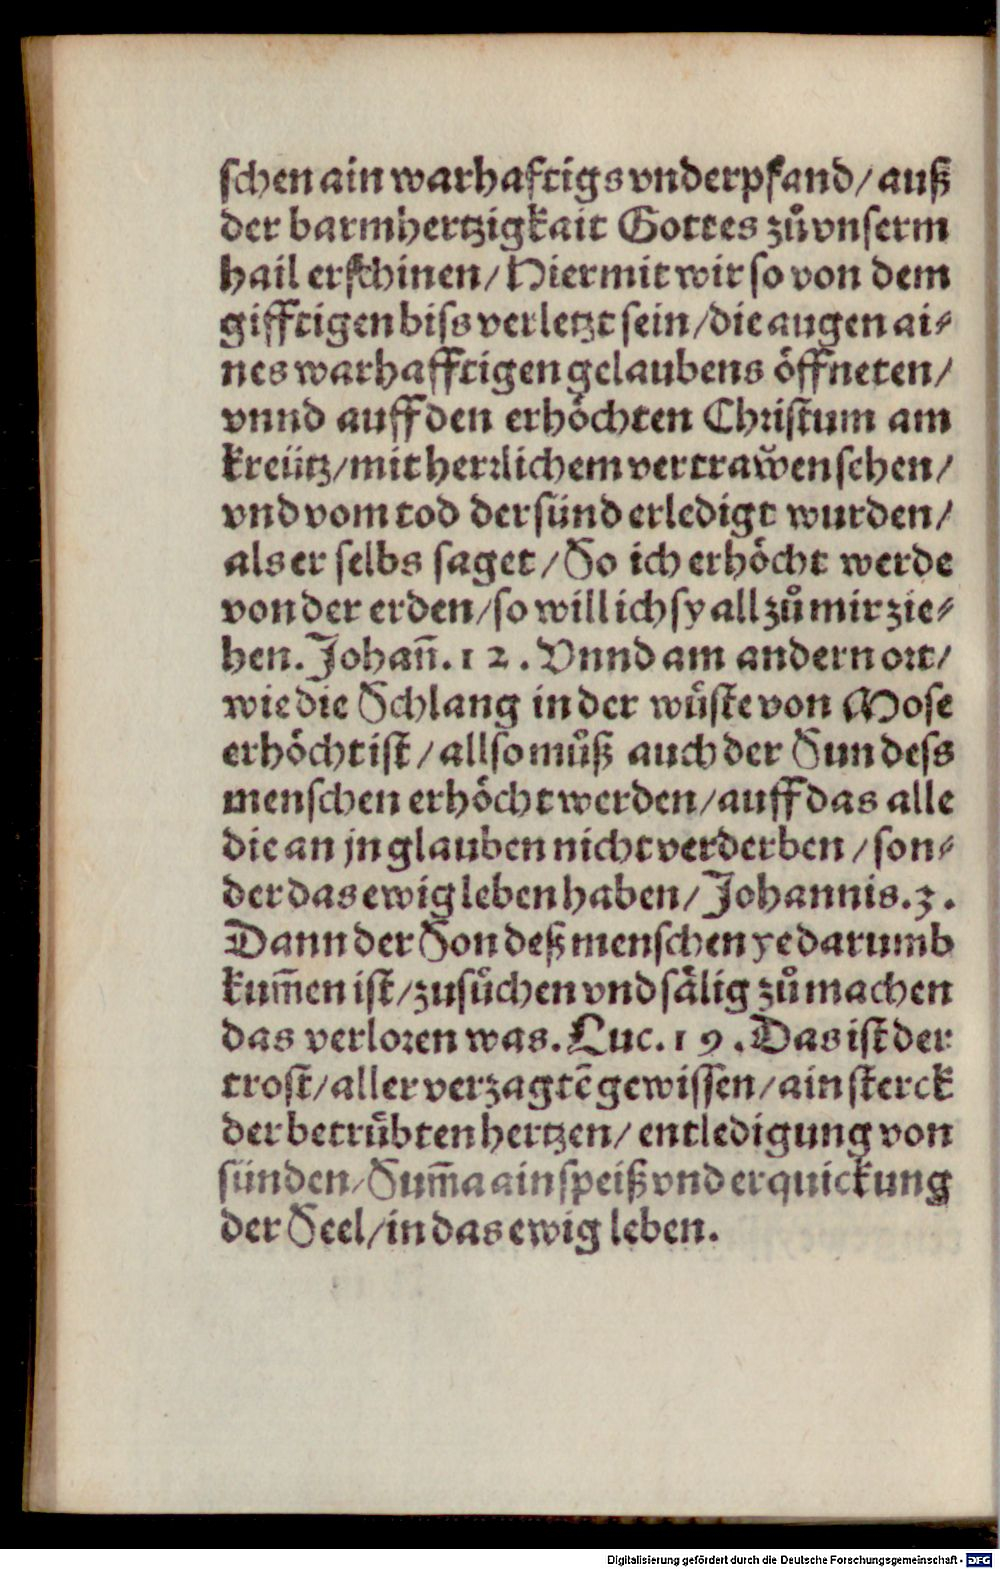 schen ain warhaftigs vnderpfand/ auß
der barmhertzigkait Gottes zuͦ vnserm
hail erschinen/ Hiermit wir so von dem
gifftigen biss verletzt sein/ die augen ai⸗
nes warhafftigen gelaubens oͤffneten/
vnnd auff den erhoͤchten Christum am
kreütz/ mit hertzlichem vertrawen sehen/
vnd vom tod der sünd erledigt wurden/
als er selbs saget/ So ich erhoͤcht werde
von der erden/ so will ich sy all zuͦ mir zie⸗
hen. Johan̄. 12. Vnnd am andern ort/
wie die Schlang in der wuͤste von Mose
erhoͤcht ist/ allso muͦß auch der Sun dess
menschen erhoͤcht werden/ auff das alle
die an jn glauben nicht verderben/ son⸗
der das ewig leben haben/ Johannis. 3.
Dann der Son deß menschen ye darumb
kum̄en ist/ zusuͦchen vnd saͤlig zuͦ machen
das verloren was. Luc. 19. Das ist der
trost/ aller verzagtē gewissen/ ain sterck
der betruͤbten hertzen/ entledigung von
sünden/ Sum̄a ain speiß vnd erquickung
der Seel/ in das ewig leben.
Digitalisierung gefördert durch die Deutsche Forschungsgemeinschaft - DFG